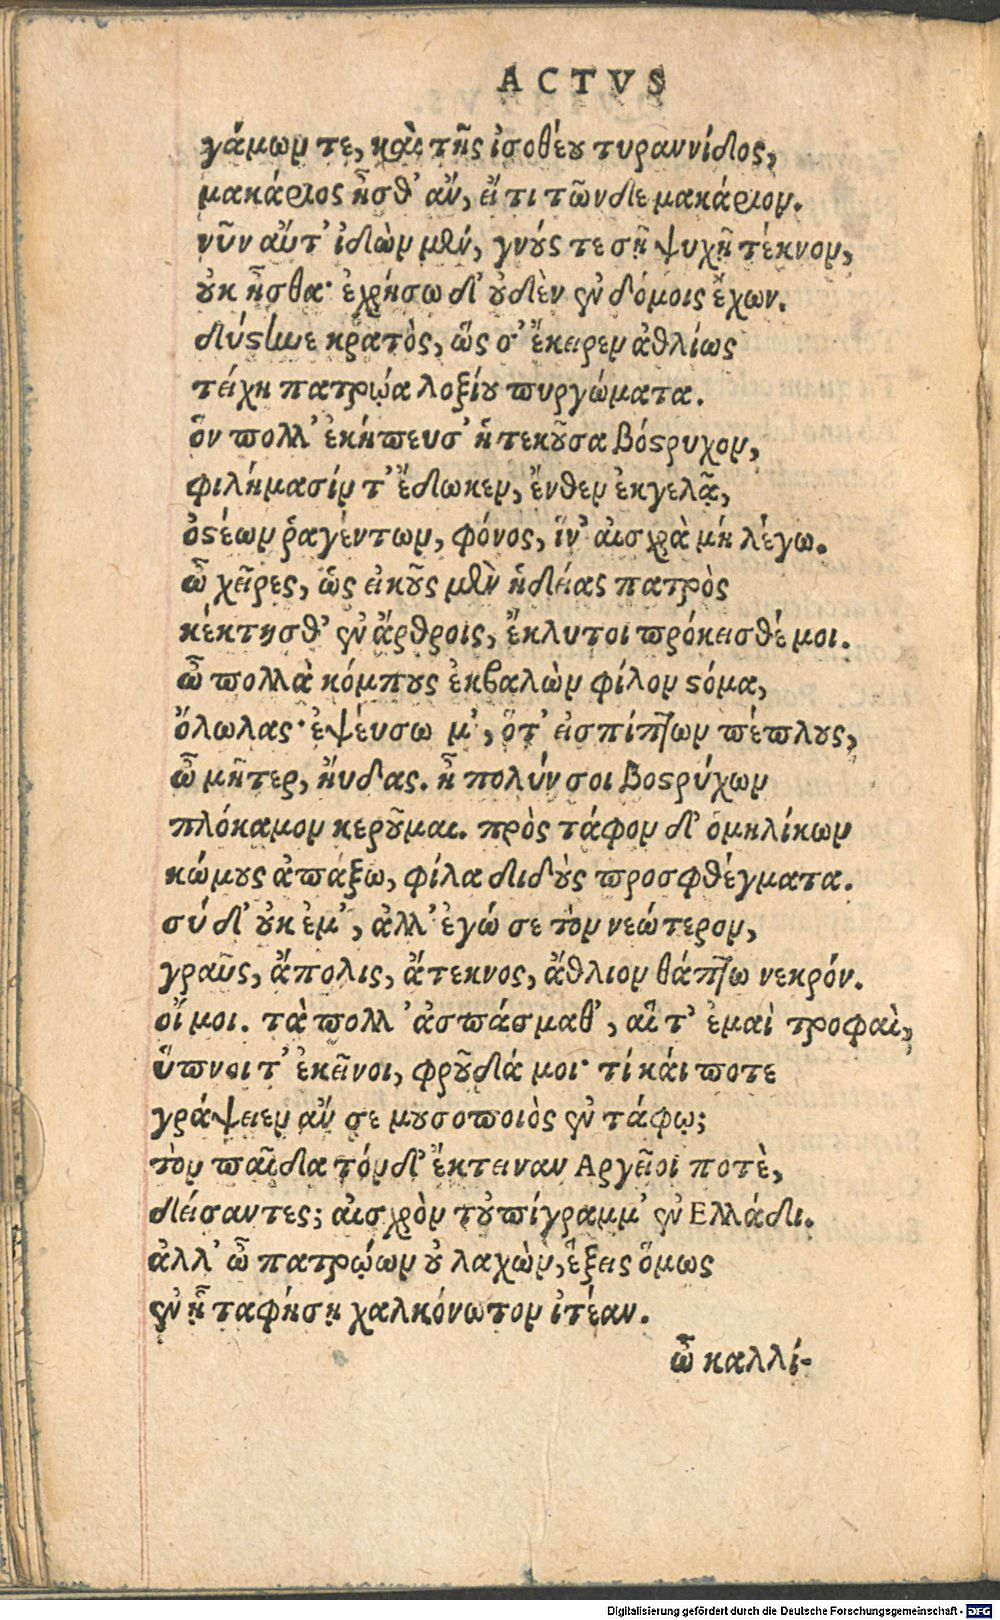 ACTVS
γάμων τε, καὶ τῆς ἰσοθέου τυραννίδος,
μακάριος ἦσθ' ἂν, εἴ τι τῶνδε μακάριον.
νῦν αὔτ' ἰδὼν μὲν, γνούς τε σῇ ψυχῇ τέκνον,
οὐκ ἦσθα· ἐχρήσω δ' οὐδὲν ἐν δόμοις ἔχων.
δύστηνε κρατὸς, ὥς σ' ἔκειρεν ἀθλίως
τείχη πατρῴα λοξίου πυργώματα.
ὃν πολλ' ἐκήπευσ' ἡ τεκοῦσα βόστρυχον,
φιλήμασίν τ' ἔδωκεν, ἔνθεν ἐκγελᾷ,
ὀστέων ῥαγέντων, φόνος, ἵν' αἰσχρὰ μή λέγω.
ὦ χεῖρες, ὡς εἰκοὺς μὲν ἡδείας πατρὸς
κέκτησθ' ἐν ἄρθροις, ἔκλυτοι πρόκεισθέ μοι.
ὦ πολλὰ κόμπους ἐκβαλὼν φίλον στόμα,
ὄλωλας· ἐψεύσω μ', ὅτ' εἰσπίπτων πέπλους,
ὦ μῆτερ, ηὔδας. ἦ πολύν σοι βοστρύχων
πλόκαμον κεροῦμαι. πρὸς τάφον δ' ὁμηλίκων
κώμους ἀπάξω, φίλα διδοὺς προσφθέγματα.
σύ δ' οὐκ ἐμ', ἀλλ' ἐγώ σε τὸν νεώτερον,
γραῦς, ἄπολις, ἄτεκνος, ἄθλιον θάπτω νεκρόν.
οἴ μοι. τὰ πολλ' ἀσπάσμαθ', αἵ τ' ἐμαὶ τροφαὶ,
ὕπνοι τ' ἐκεῖνοι, φροῦδά μοι· τί καί ποτε
γράψειεν ἄν σε μουσοποιὸς ἐν τάφῳ;
τὸν παῖδα τόνδ' ἔκτειναν Αργεῖοι ποτὲ,
δείσαντες; αἰσχρὸν τοὐπίγραμμ' ἐν Ελλάδι.
ἀλλ' ὦ πατρῴων οὐ λαχὼν, ἕξεις ὅμως
ἐν ᾗ ταφήσῃ χαλκόνωτον ἰτέαν.
ὦ καλλί-
Digitalisierung gefördert durch die Deutsche Forschungsgemeinschaft - DFG